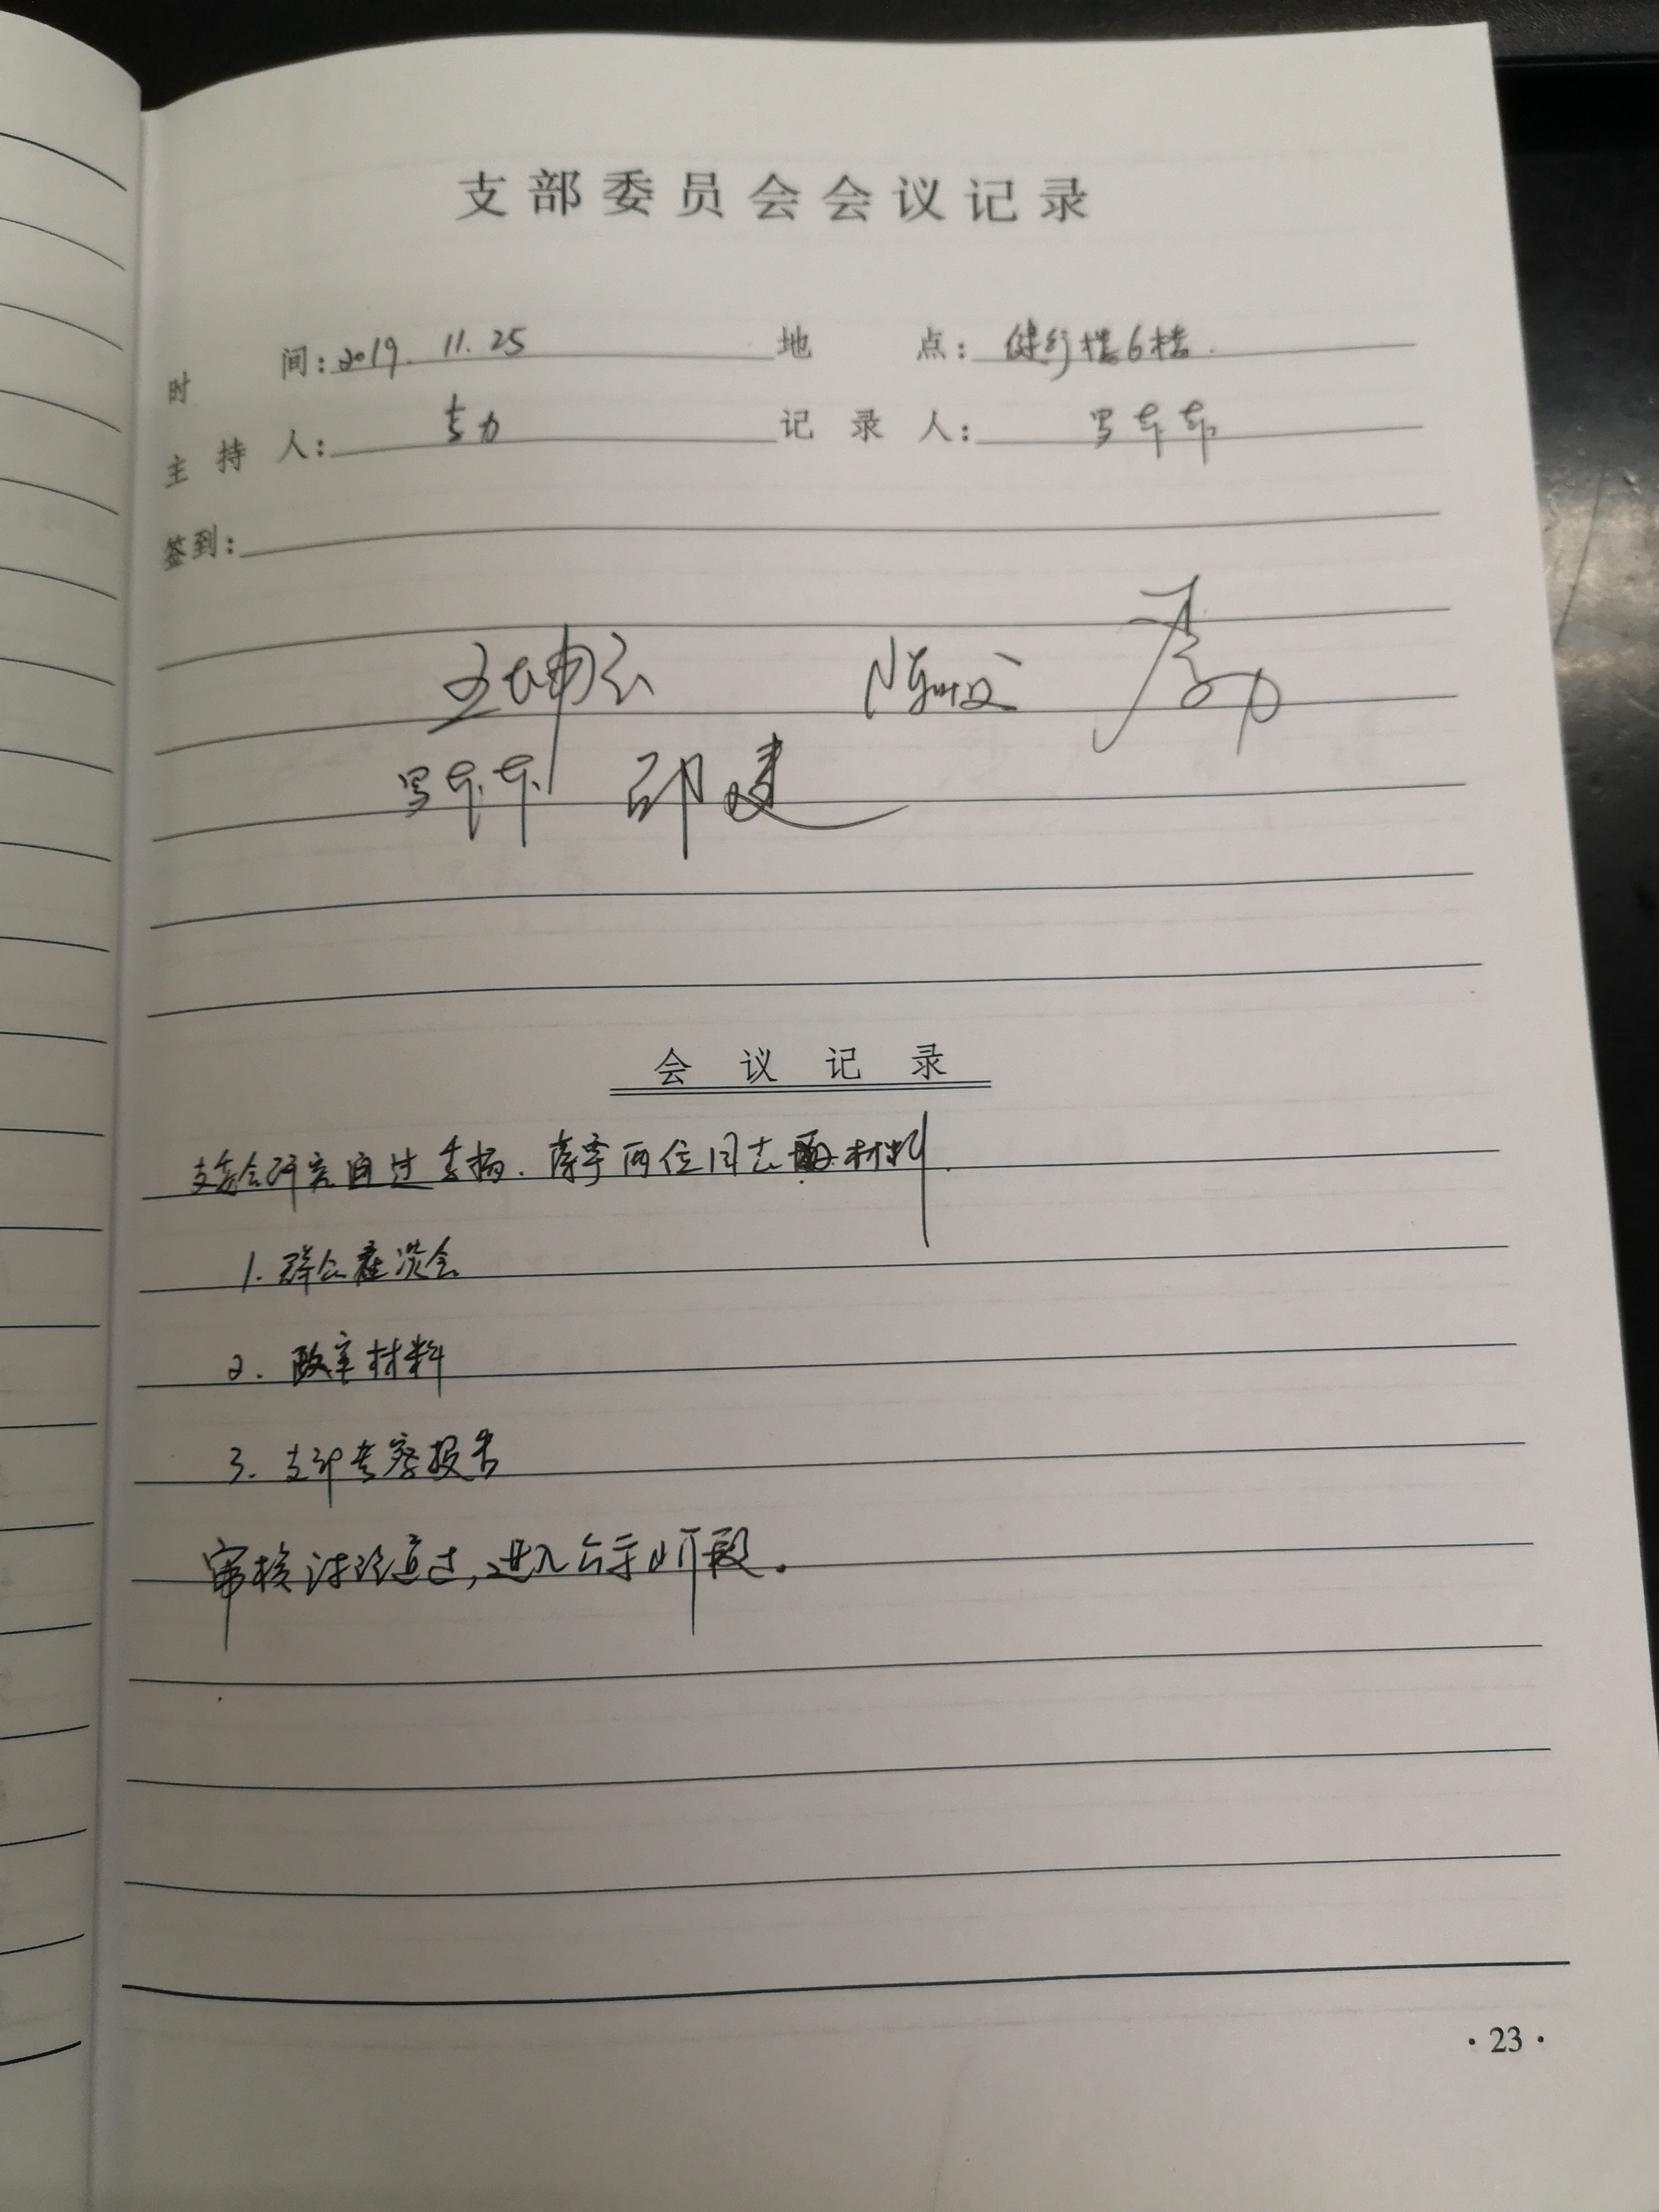 支部委员会会议记录
时间：2019.11.25 地点：健行楼6楼.
主持人： 记录人：
签到：
王坤云
邵建
会议记录
支委会研究通过李杨.两位同志材料.
1.群众座谈会
2.政审材料
3.支部考察报告
审核讨论通过，进入公示阶段。
·23·